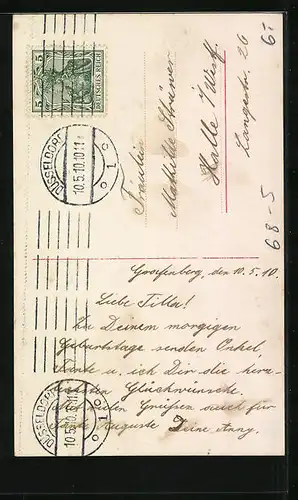 5 5
DEUTSCHES REICH
DÜSSELDORF
10.5.10.11
1
c
Fräulein
Mathilde Strüver
Halle i/Westf.
Langestr. 26
6T
68-5
Grafenberg, den 10.5.10.
Liebe Tilla!
Zu Deinem morgigen
Geburtstage senden Onkel,
Tante u. ich Dir die herz-
lichsten Glückwünsche.
Mit vielen Grüßen auch für
Tante Auguste Deine Anny.
DÜSSELDORF
10.5.10.11
1
c